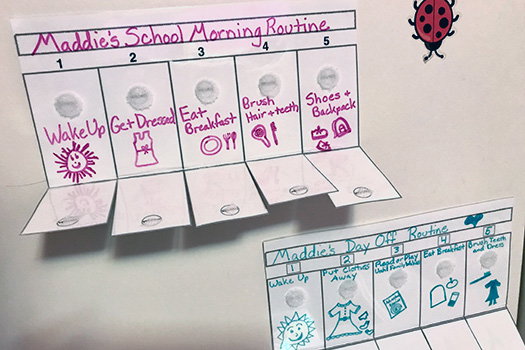 Maddie's School Morning Routine
1 2 3 4 5
Wake Up
Get Dressed
Eat
Breakfast
Brush
Hair + teeth
Shoes +
Backpack
Maddie's Day Off Routine
1 2 3 4 5
Wake Up
Put Clothes
Away
Read or Play
Until Family Wakes
Eat Breakfast
Brush Teeth
and Dress